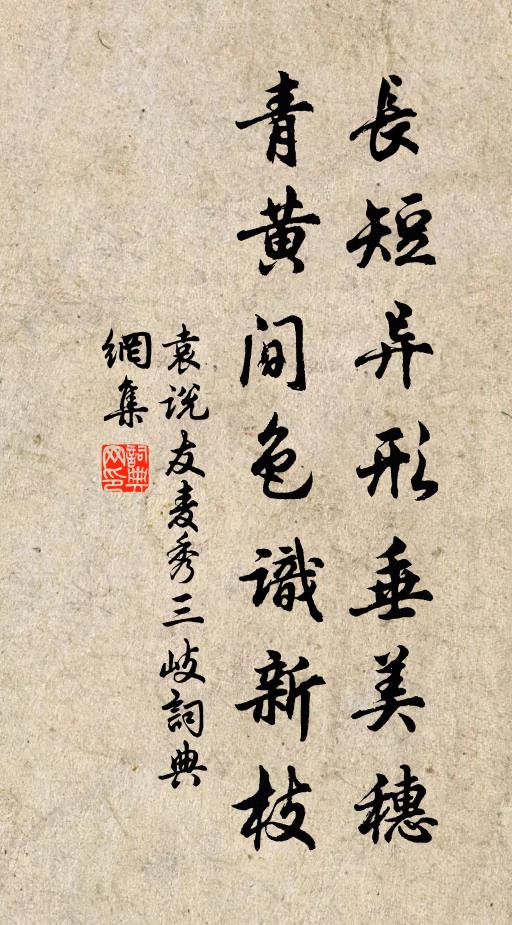 長短异形垂美穗
青黄間色識新枝
袁说友麦秀三歧詞典
網集
詞典
网印